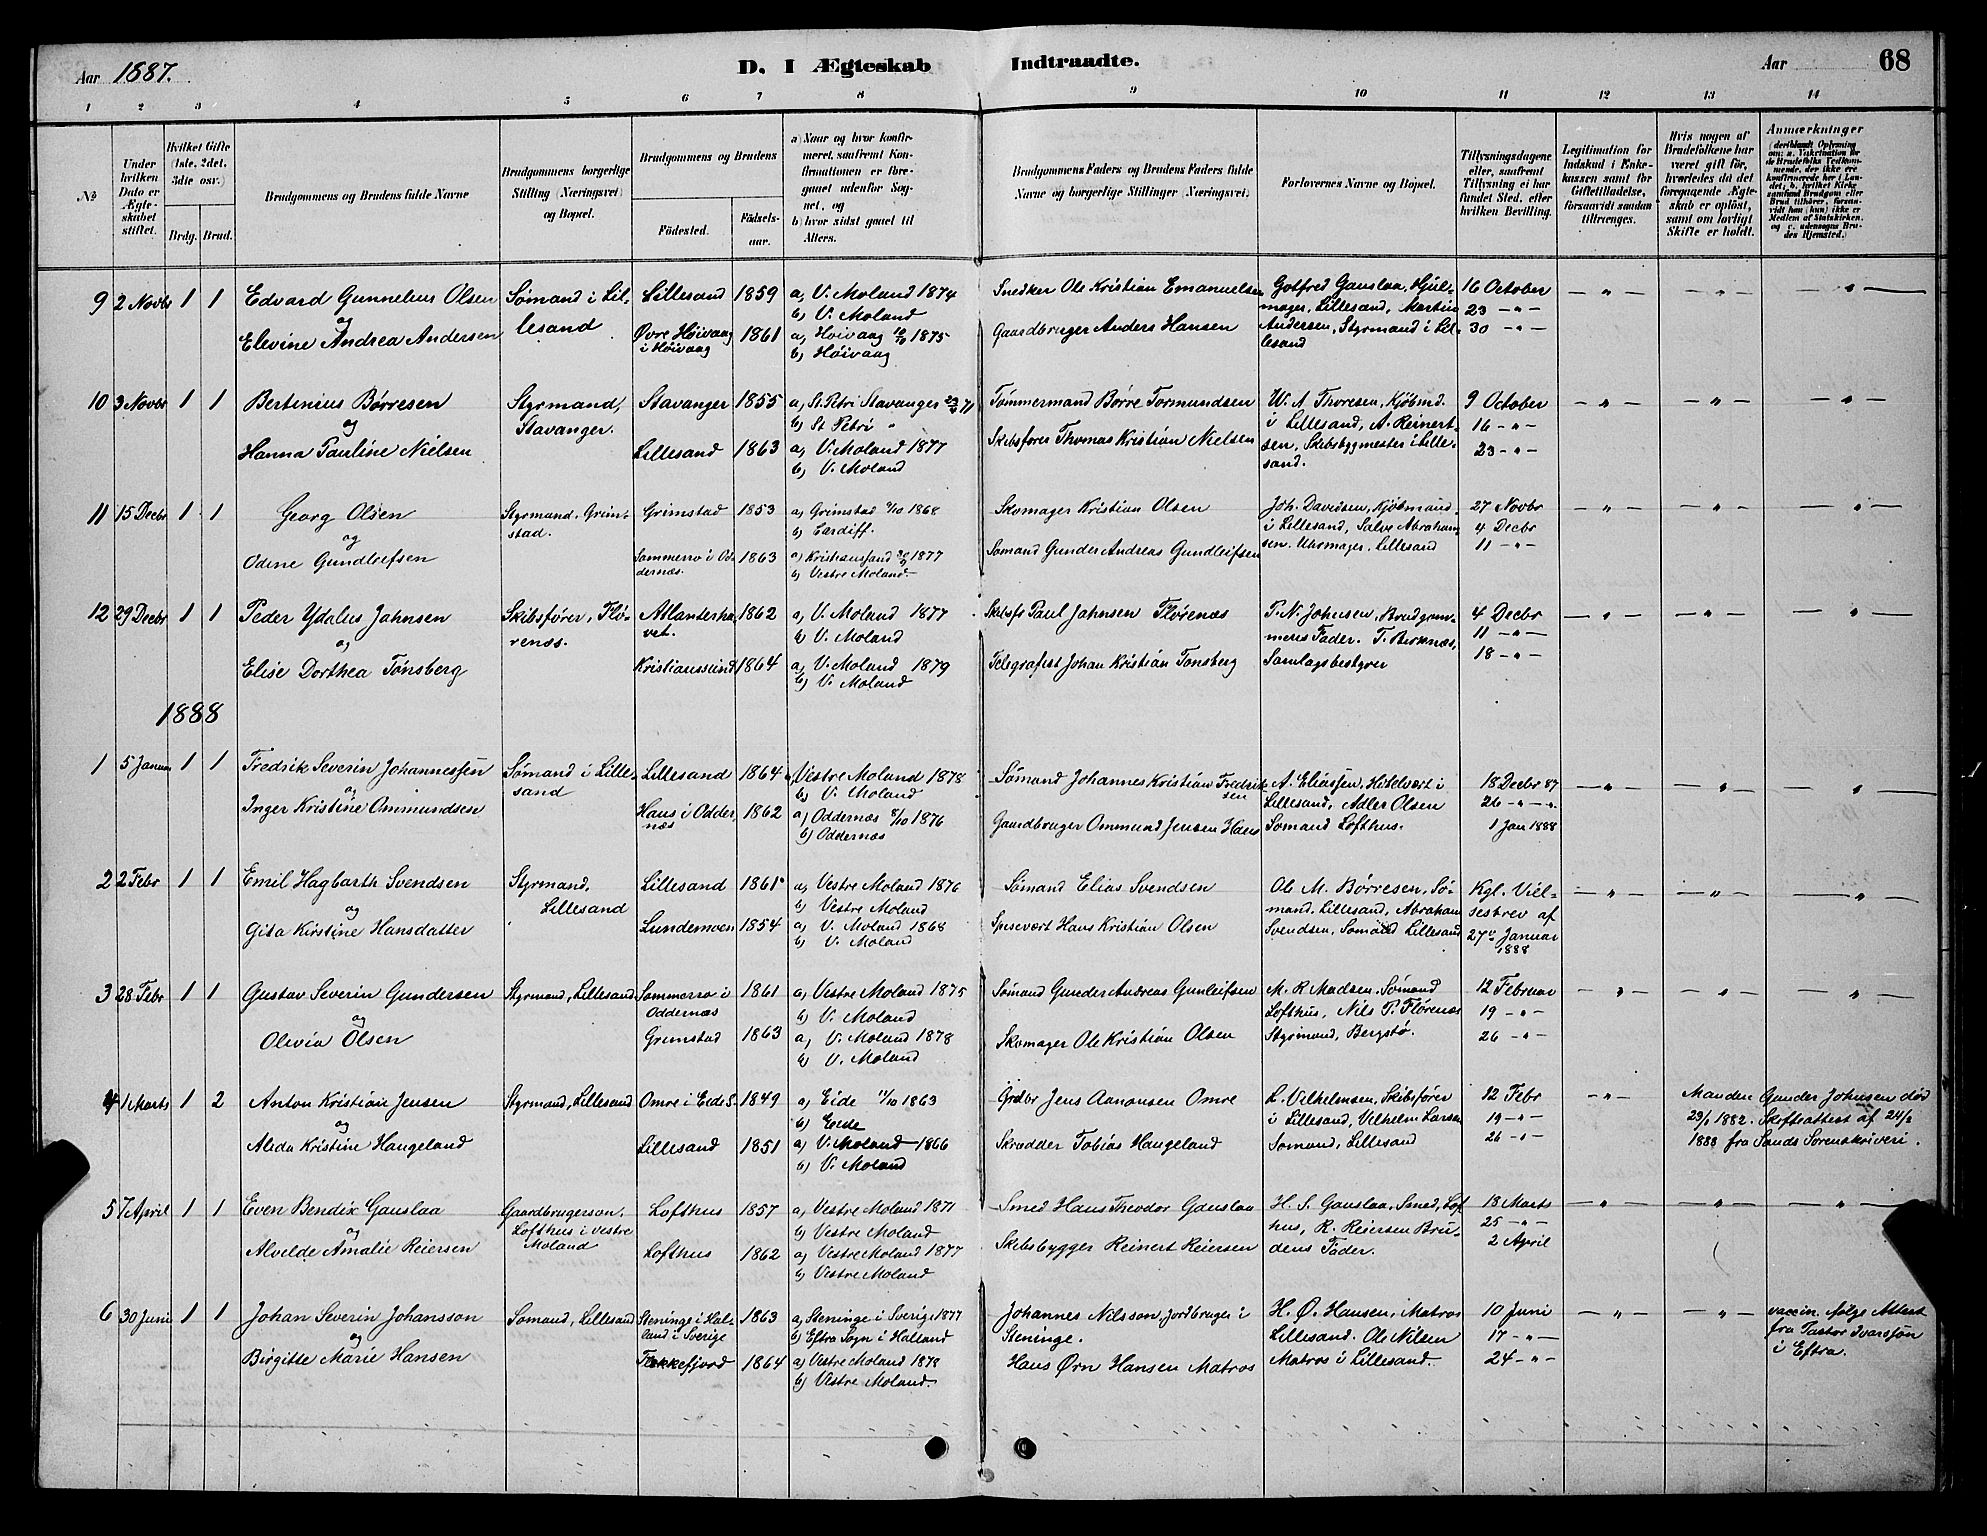 Aar 1887. D. I Ægteskab Indtraadte. Aar 68
1 2 3 4 5 6 7 8 9 10 11 12 13 14
№
Under hvilken Dato er Ægteskabet stiftet.
Hvilket Gifte (1ste, 2det, 3die osv.)
Brdg. Brud.
Brudgommens og Brudens fulde Navne
Brudgommens borgerlige Stilling (Næringsvei) og Bopæl.
Brudgommens og Brudens
Fødested. Fødselsaar.
a) Naar og hvor konfirmeret, saafremt Konfirmationen er foregaaet udenfor Sognet, og
b) hvor sidst gaaet til Alters.
Brudgommens Faders og Brudens Faders fulde Navne og borgerlige Stillinger (Næringsvei).
Forlovernes Navne og Bopæl.
Tillysningsdagene eller, saafremt Tillysning ei har fundet Sted, efter hvilken Bevilling.
Legitimation for Indskud i Enkekassen samt for Giftetilladelse, forsaavidt saadan tiltrænges.
Hvis nogen af Brudefolkene har været gift før, hvorledes da det foregaaende Ægteskab er opløst, samt om lovligt Skifte er holdt.
Anmærkninger
9 2 Novbr 1 1 Edvard Gunnelius Olsen
og
Elevine Andrea Andersen
Sømand i Lillesand
Lillesand 1859 a, V. Moland 1874
b, V. Moland
Øvre Høivaag i Høivaag 1861 a, Høivaag 1875
b, Høivaag
Snedker Ole Kristian Emanuelsen
Gaardbruger Anders Hansen
Gotfred Gauslaa, Hjulmager, Lillesand, Martin Andersen, Styrmand i Lillesand
16 October
23 - " -
30 - " -
10 3 Novbr 1 1 Bertinius Børresen
og
Hanna Pauline Nielsen
Styrmand, Stavanger.
Stavanger 1855 a, St. Petri Stavanger 71
b, St Petri "
Lillesand 1863 a, V. Moland 1877
b, V. Moland
Tømmermand Børre Tormundsen
Skibsfører Thomas Kristian Nielsen
W. A. Thoresen, Kjøbmd. i Lillesand, A. Reinertsen, Skibsbygmester i Lillesand.
9 October
16 - " -
23 - " -
11 15 Decbr 1 1 Georg Olsen
og
Odine Gundleifsen
Styrmand, Grimstad.
Grimstad 1853 a, Grimstad 1868
b, Cardiff.
Sommerro i Oddernæs. 1863 a, Kristiansand 1877
b, Vestre Moland
Skomager Kristian Olsen
Sømand Gunder Andreas Gundleifsen
Joh. Davidsen, Kjøbmand i Lillesand, Salve Abrahamsen, Uhrmager, Lillesand
27 Novbr
4 Decbr
11 - " -
12 29 Decbr 1 1 Peder Ydalus Jahnsen
og
Elise Dorthea Tønsberg
Skibsfører, Flørenæs.
Atlanterhavet. 1862 a, V. Moland 1877
b, V. Moland
Kristianssund 1864 a, V. Moland 1879
b, V. Moland
Skibsf. Paul Jahnsen Flørenæs
Telegrafist Johan Kristian Tønsberg
P. N. Johnsen, Brudgommens Fader. T. Birknæs, Samlagsbestyrer
4 Decbr
11 - " -
18 - " -
1888
1 5 Januar 1 1 Fredrik Severin Johannessen
og
Inger Kristine Ommundsen
Sømand i Lillesand
Lillesand 1864 a, Vestre Moland 1878
b, V. Moland
Haus i Oddernæs 1862 a, Oddernæs 8/10 1876
b, Oddernæs
Sømand Johannes Kristian Fredriksen
Gaardbruger Ommund Jensen Haus
A. Eliassen, Hotelvært i Lillesand, Adler Olsen Sømand Lofthus.
18 Decbr 87
26 - " -
1 Jan 1888
2 2 Febr 1 1 Emil Hagbarth Svendsen
og
Gita Kirstine Hansdatter
Styrmand, Lillesand
Lillesand 1861 a, Vestre Moland 1876
b, Vestre Moland
Lundemoen 1854 a, V. Moland 1868
b, V. Moland
Sømand Elias Svendsen
Spisevært Hans Kristian Olsen
Ole M. Børresen, Sømand, Lillesand, Abraham Svendsen, Sømand Lillesand
Kgl. Vielsesbrev af 27de Januar 1888
3 28 Febr 1 1 Gustav Severin Gundersen
og
Olivia Olsen
Styrmand, Lillesand
Sommerro i Oddernæs 1861 a, Vestre Moland 1875
b, V. Moland
Grimstad 1863 a, V. Moland 1878
b, V. Moland
Sømand Gunder Andreas Gunleifsen
Skomager Ole Kristian Olsen
M. R. Madsen, Sømand Lofthus, Nils P. Flørenæs Styrmand, Bergstø.
12 Februar
19 - " -
26 - " -
4 1 Marts 1 2 Anton Kristian Jensen
og
Alida Kristine Haugeland
Styrmand, Lillesand
Omre i Eide S. 1849 a, Eide 11/10 1863
b, Eide
Lillesand 1851 a, V. Moland 1866
b, V. Moland
Grdbr Jens Aanonsen Omre
Skrædder Tobias Haugeland
L. Vilhelmsen, Skibsfører i Lillesand, Vilhelm Larsen Sømand, Lillesand
12 Febr
19 - " -
26 - " -
Manden Gunder Johnsen død 29/1 1882. Skifteattest af 24/2 1888 fra Sands Sorenskriveri.
5 7 April 1 1 Even Bendix Gauslaa
og
Alvilde Amalie Reiersen
Gaardbrugersøn, Lofthus i Vestre Moland
Lofthus 1857 a, Vestre Moland 1871
b, Vestre Moland
Lofthus 1862 a, Vestre Moland 1877
b, Vestre Moland
Smed Hans Theodor Gauslaa
Skibsbygger Reinert Reiersen
H. S. Gauslaa, Smed, Lofthus, R. Reiersen Brudens Fader.
18 Marts
25 - " -
2 April
6 30 Juni 1 1 Johan Severin Johansson
og
Birgitte Marie Hansen
Sømand, Lillesand
Steninge i Halland i Sverige 1863 a, Steninge i Sverige 1877
b, Eftra Sogn i Halland
Flekkefjord 1864 a, Vestre Moland 1878
b, Vestre Moland.
Johannes Nilsson, Jordbruger i Steninge.
Hans Ørn Hansen Matros
H. Ø. Hansen, Matros Lillesand. Ole Nilsen Matros i Lillesand.
10 Juni
17 - " -
24 - " -
vaccin. ifølge Attest fra Pastor Ivarssøn i Eftra.